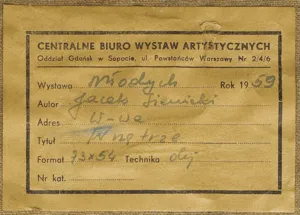 CENTRALNE BIURO WYSTAW ARTYSTYCZNYCH
Oddział Gdańsk w Sopocie, ul. Powstańców Warszawy Nr 2/4/6
Wystawa Młodych Rok 1959
Autor Jacek Sienicki
Adres W-wa
Tytuł Wnętrze
Format 73x54 Technika olej
Nr kat.